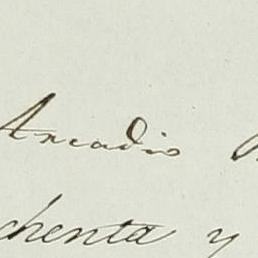 Arcadio
chenta y